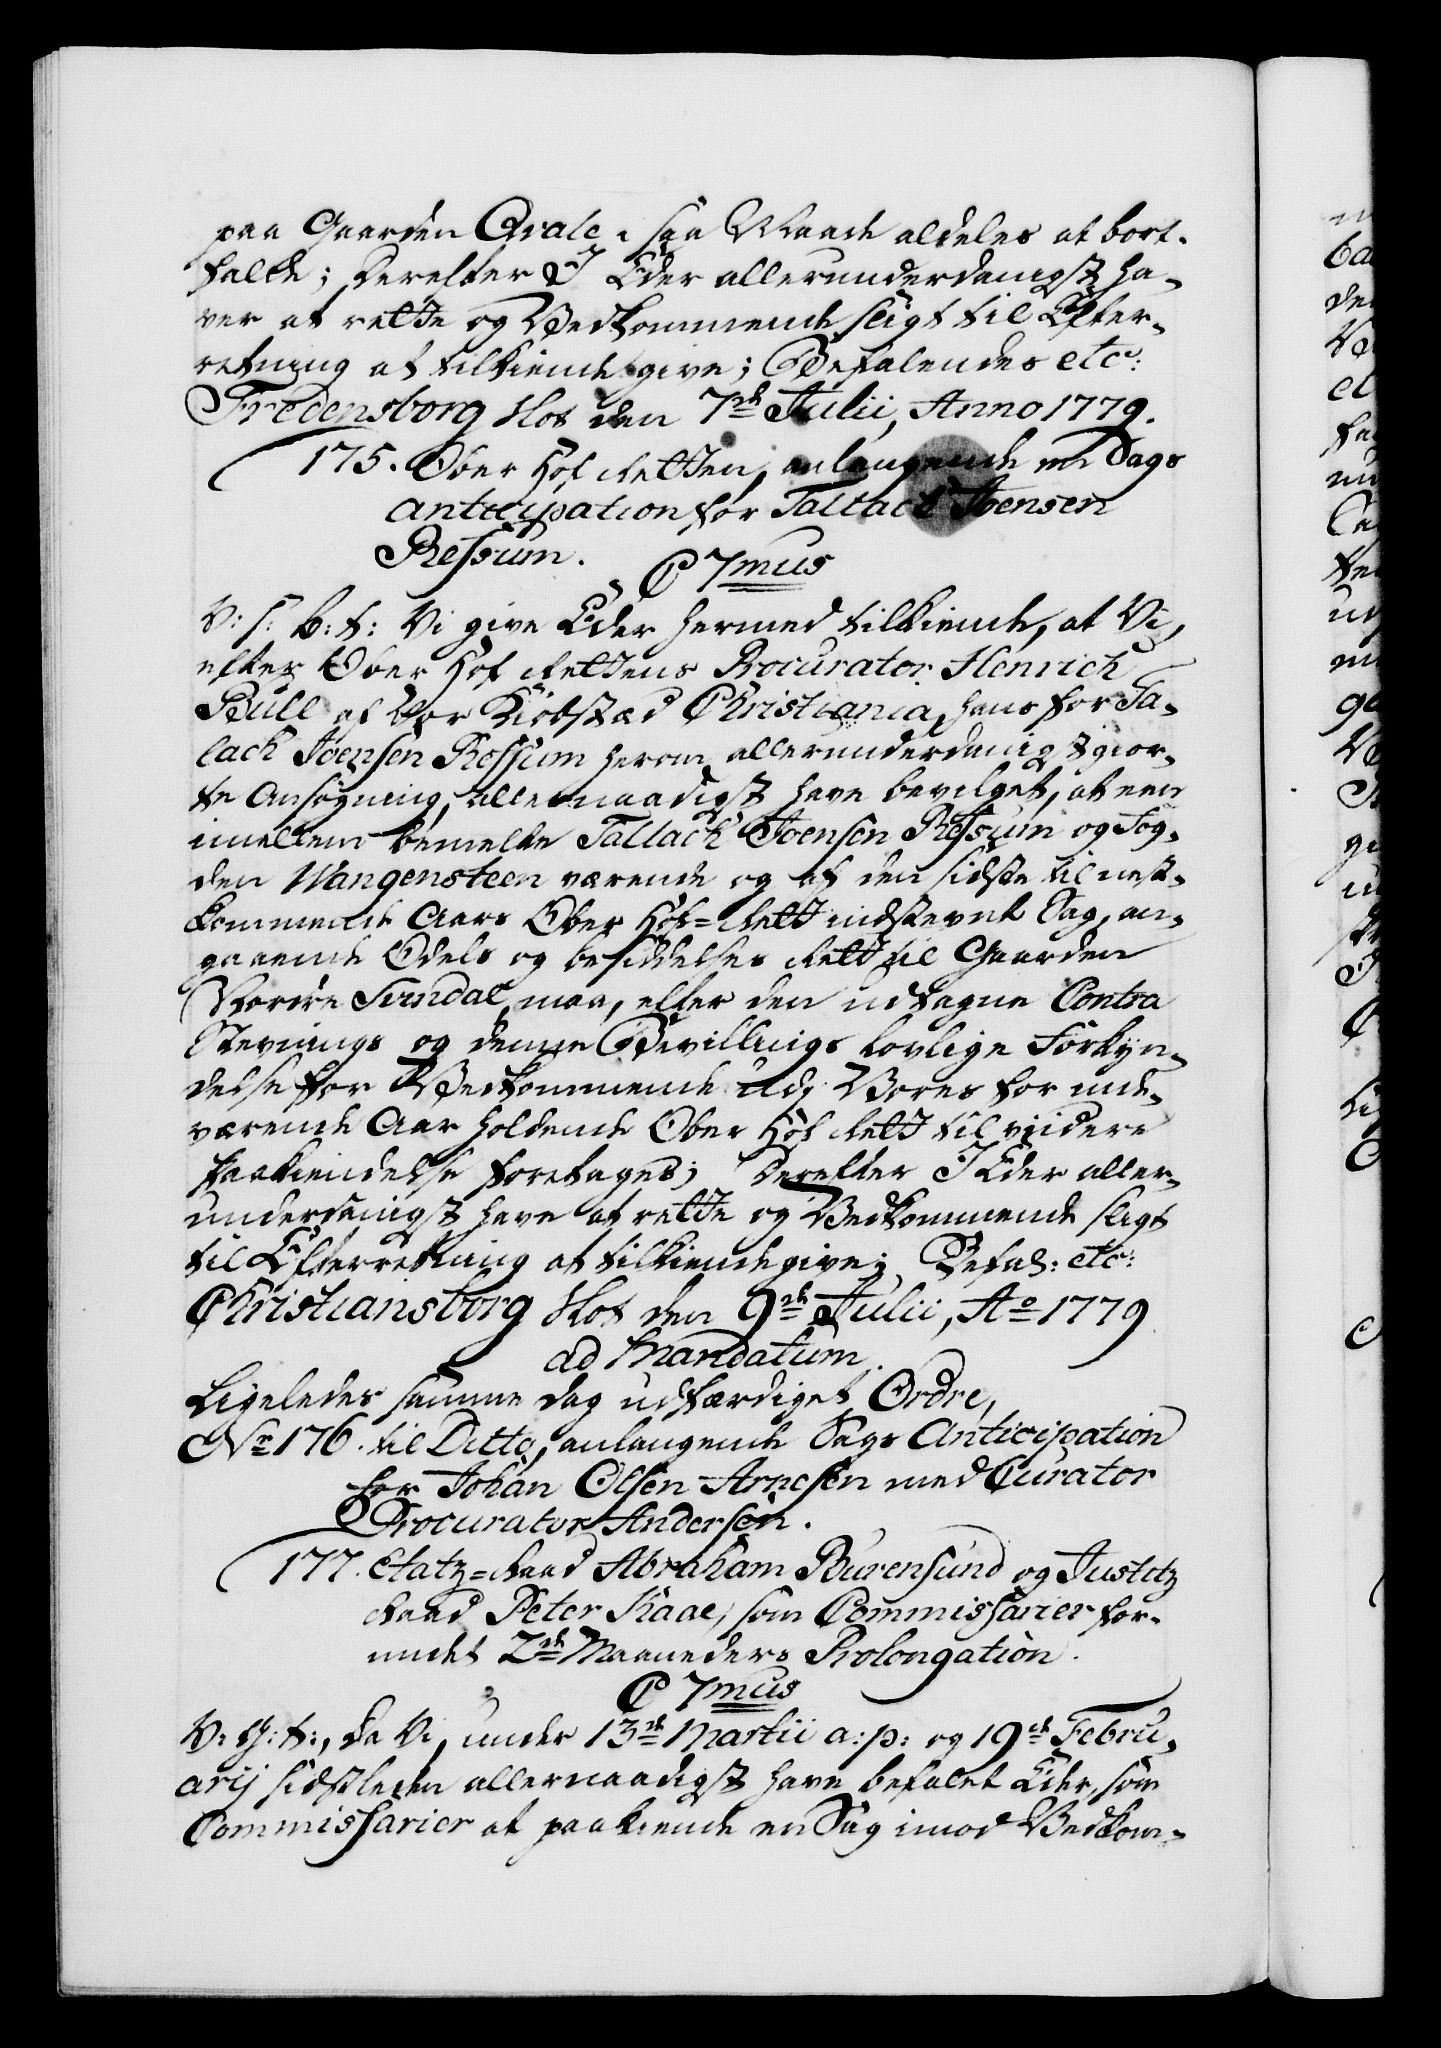 paa Gaarden Qvale i saa Maade aldeles at bort-
falde; Derefter I Eder allerunderdanigst ha-
ver at rette og Vedkommende sligt til Efter-
retning at tilkiende give; Befalendes etc:
Fredensborg Slot den 7de Julii, Anno 1779.
175. Ober Hof Retten, anlangende en Sags
anticipation for Tallack Joensen
Ressum.
C 7mus
V: S: B: t: Vi give Eder hermed tilkiende, at Vi,
efter Ober Hof Rettens Procurator Henrich
Bull af Vor Kiøbstæd Christiania, hans for Ta-
lach Joensen Ressum herom allerunderdanigst gior-
te Ansøgning, allernaadigst have bevilget, at een
imellem bemelte Tallack Joensen Ressum og Fog-
den Wangensteen værende og af den sidste til nest-
kommende Aars Ober Hof-Rett indstevnt Sag, an-
gaaende Odels og besiddelses Rett til Gaarden
Nordre Svindal, maa, efter den udtagne Contra
Stevnings og denne Bevillings lovlige Forkyn-
delse for Vedkommende udj Vores for inde-
værende Aar holdende Ober Hof Rett til viidere
Paakiendelse foretages; Derefter I Eder aller-
underdanigst have at rette og Vedkommende sligt
til Efterretning at tilkiendegive; Befal: etc:
Christiansborg Slot den 9de Julii, Ao 1779
ad Mandatum.
Ligeledes samme dag udfærdiget Ordre,
No 176. til Ditto, anlangende Sags Anticipation
for Johan Olsen Arnesen med Curator
Procurator Andersen.
177. Etatz-Raad Abraham Burensund og Justitz
Raad Peter Kaae, som Commissarier for-
undt 2de Maaneders Prolongation.
C 7mus
V: G: t:, Da Vi, under 13de Martii a: p: og 19de Febru-
arij sidstleden allernaadigst have befalet Eder, som
Commissarier at paakiende en Sag imod Vedkom-